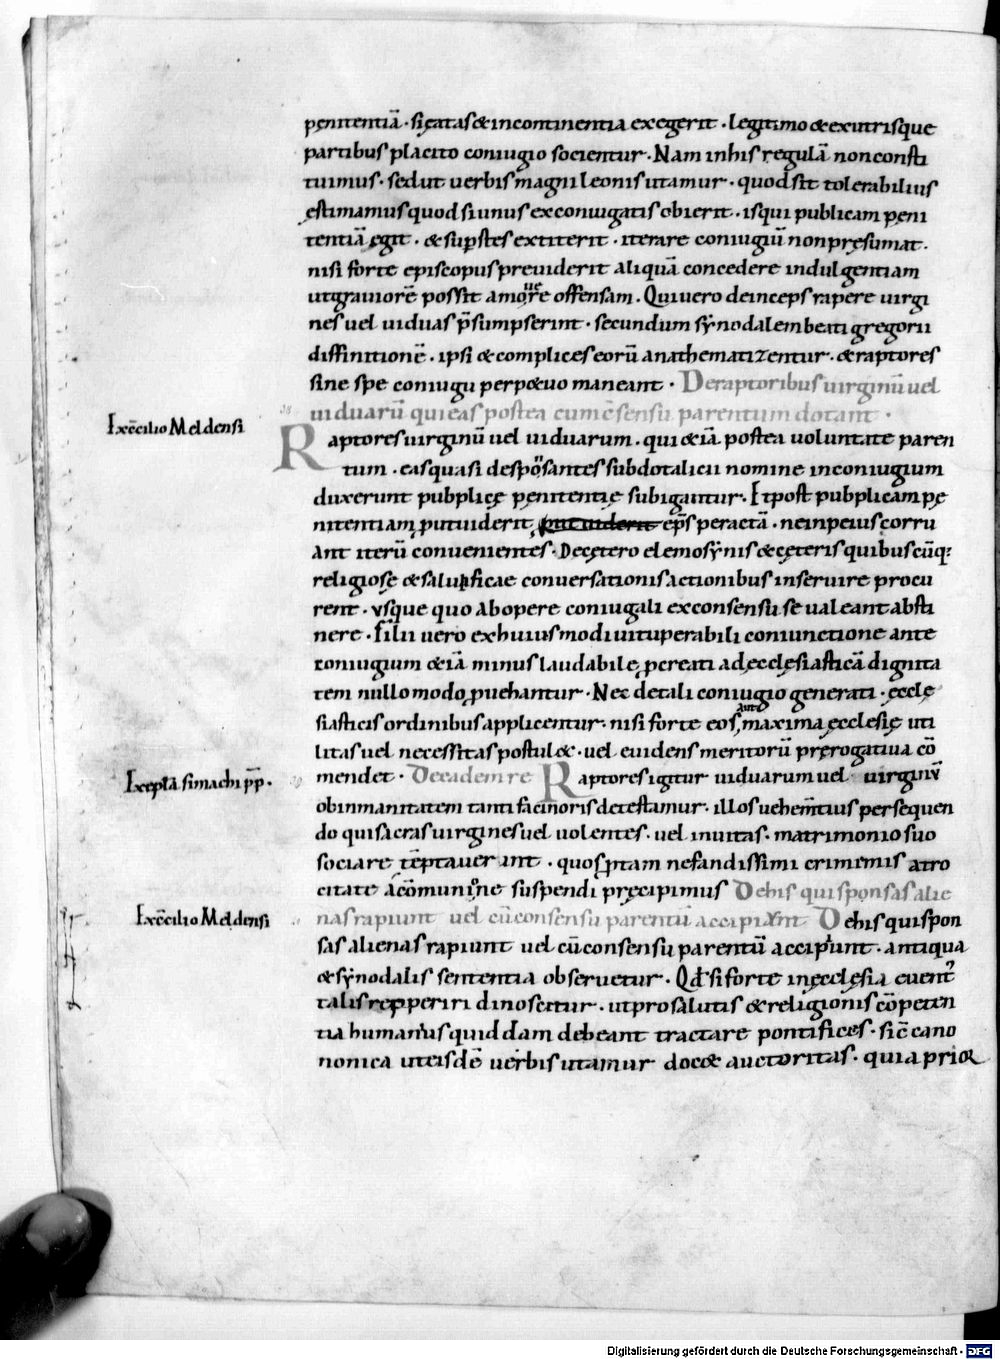 penitentiā · si ętas & incontinentia exegerit · legitimo & ex utrisque
partibus placito coniugio socientur · Nam in his regulā non consti
tuimus · sed ut uerbis magni leonis utamur · quod sit tolerabilius
ęstimamus quod si unus ex coniugatis obierit · is qui publicam pęni
tentiā egit · & supstes extiterit · iterare coniugiū non pręsumat ·
nisi forte episcopus preuiderit aliquā concedere indulgentiam
ut grauiorē possit amouere offensam · Qui uero deinceps rapere uirgi
nes uel uiduas p̄sumpserint · secundum synodalem beati gregorii
diffinitionē · ipsi & complices eorū anathematizentur · & raptores
sine spe coniugii perp&uo maneant · De raptoribus uirginū uel
uiduarū qui eas postea cum ēsensu parentum dotant ·
Ex c̄cilio Meldensi
Raptores uirginū uel uiduarum · qui &iā postea uoluntate paren
tum · eas quasi desponsantes sub dotalicii nomine in coniugium
duxerunt pubplicę penitentię subigantur · Et post pubplicam pę
nitentiam putuiderit put uiderit ep̄s peractā · ne in peius corru
ant iterū conuenientes · De cętero elemosynis & cęteris quibuscūq:
religiosę & salutificae conuersationis actionibus inseruire procu
rent · vsque quo ab opere coniugali ex consensu se ualeant absti
nere · filii uero ex huiusmodi uituperabili coniunctione ante
coniugium &iā minus laudabile pcreati ad ecclesiasticā dignita
tem nullo modo puehantur · Nec de tali coniugio generati · ecclę
siasticis ordinibus applicentur · nisi forte eos aut maxima ęcclesię uti
litas uel necessitas postul& · uel euidens meritorū prerogatiua cō
mendet · De eadem re Raptores igitur uiduarum uel uirginū
Ex eplā simachi pp̄ ·
ob inmanitatem tanti facinoris detestamur · illos uehem̄tius persequen
do qui sacras uirgines uel uolentes · uel inuitas · matrimonio suo
sociare tēptauerint · quos ptam nefandissimi criminis atro
citate a cōmunione suspendi pręcipimus De his qui sponsas alie
Ex c̄cilio Meldensi
nas rapiunt uel cū consensu parentū accipiunt De his qui spon
sas alienas rapiunt uel cū consensu parentū accipiunt · antiqua
& synodalis sententia obseruetur · Qd si forte in ęcclęsia euent?
talis repperiri dinoscitur · ut pro salutis & religionis cōpeten
tia humanius quiddam debeant tractare pontifices · sic̄ cano
nonica ut eisdē uerbis utamur doc& auctoritas · quia prior
Digitalisierung gefördert durch die Deutsche Forschungsgemeinschaft - DFG